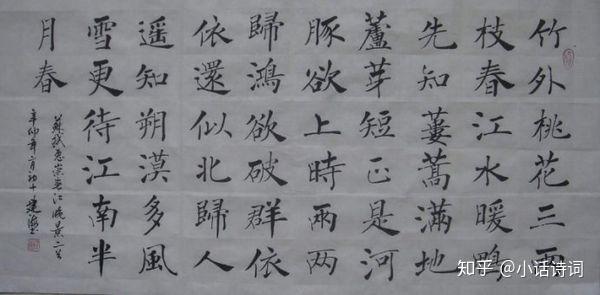 竹外桃花三兩
枝春江水暖鴨
先知蔞蒿滿地
蘆芽短正是河
豚欲上時兩两
歸鴻欲破群依
依還似北歸人
遥知朔漠多風
雪更待江南半
月春
蘇軾惠崇春江晚景二首
辛卯年月初十
知乎 @小话诗词